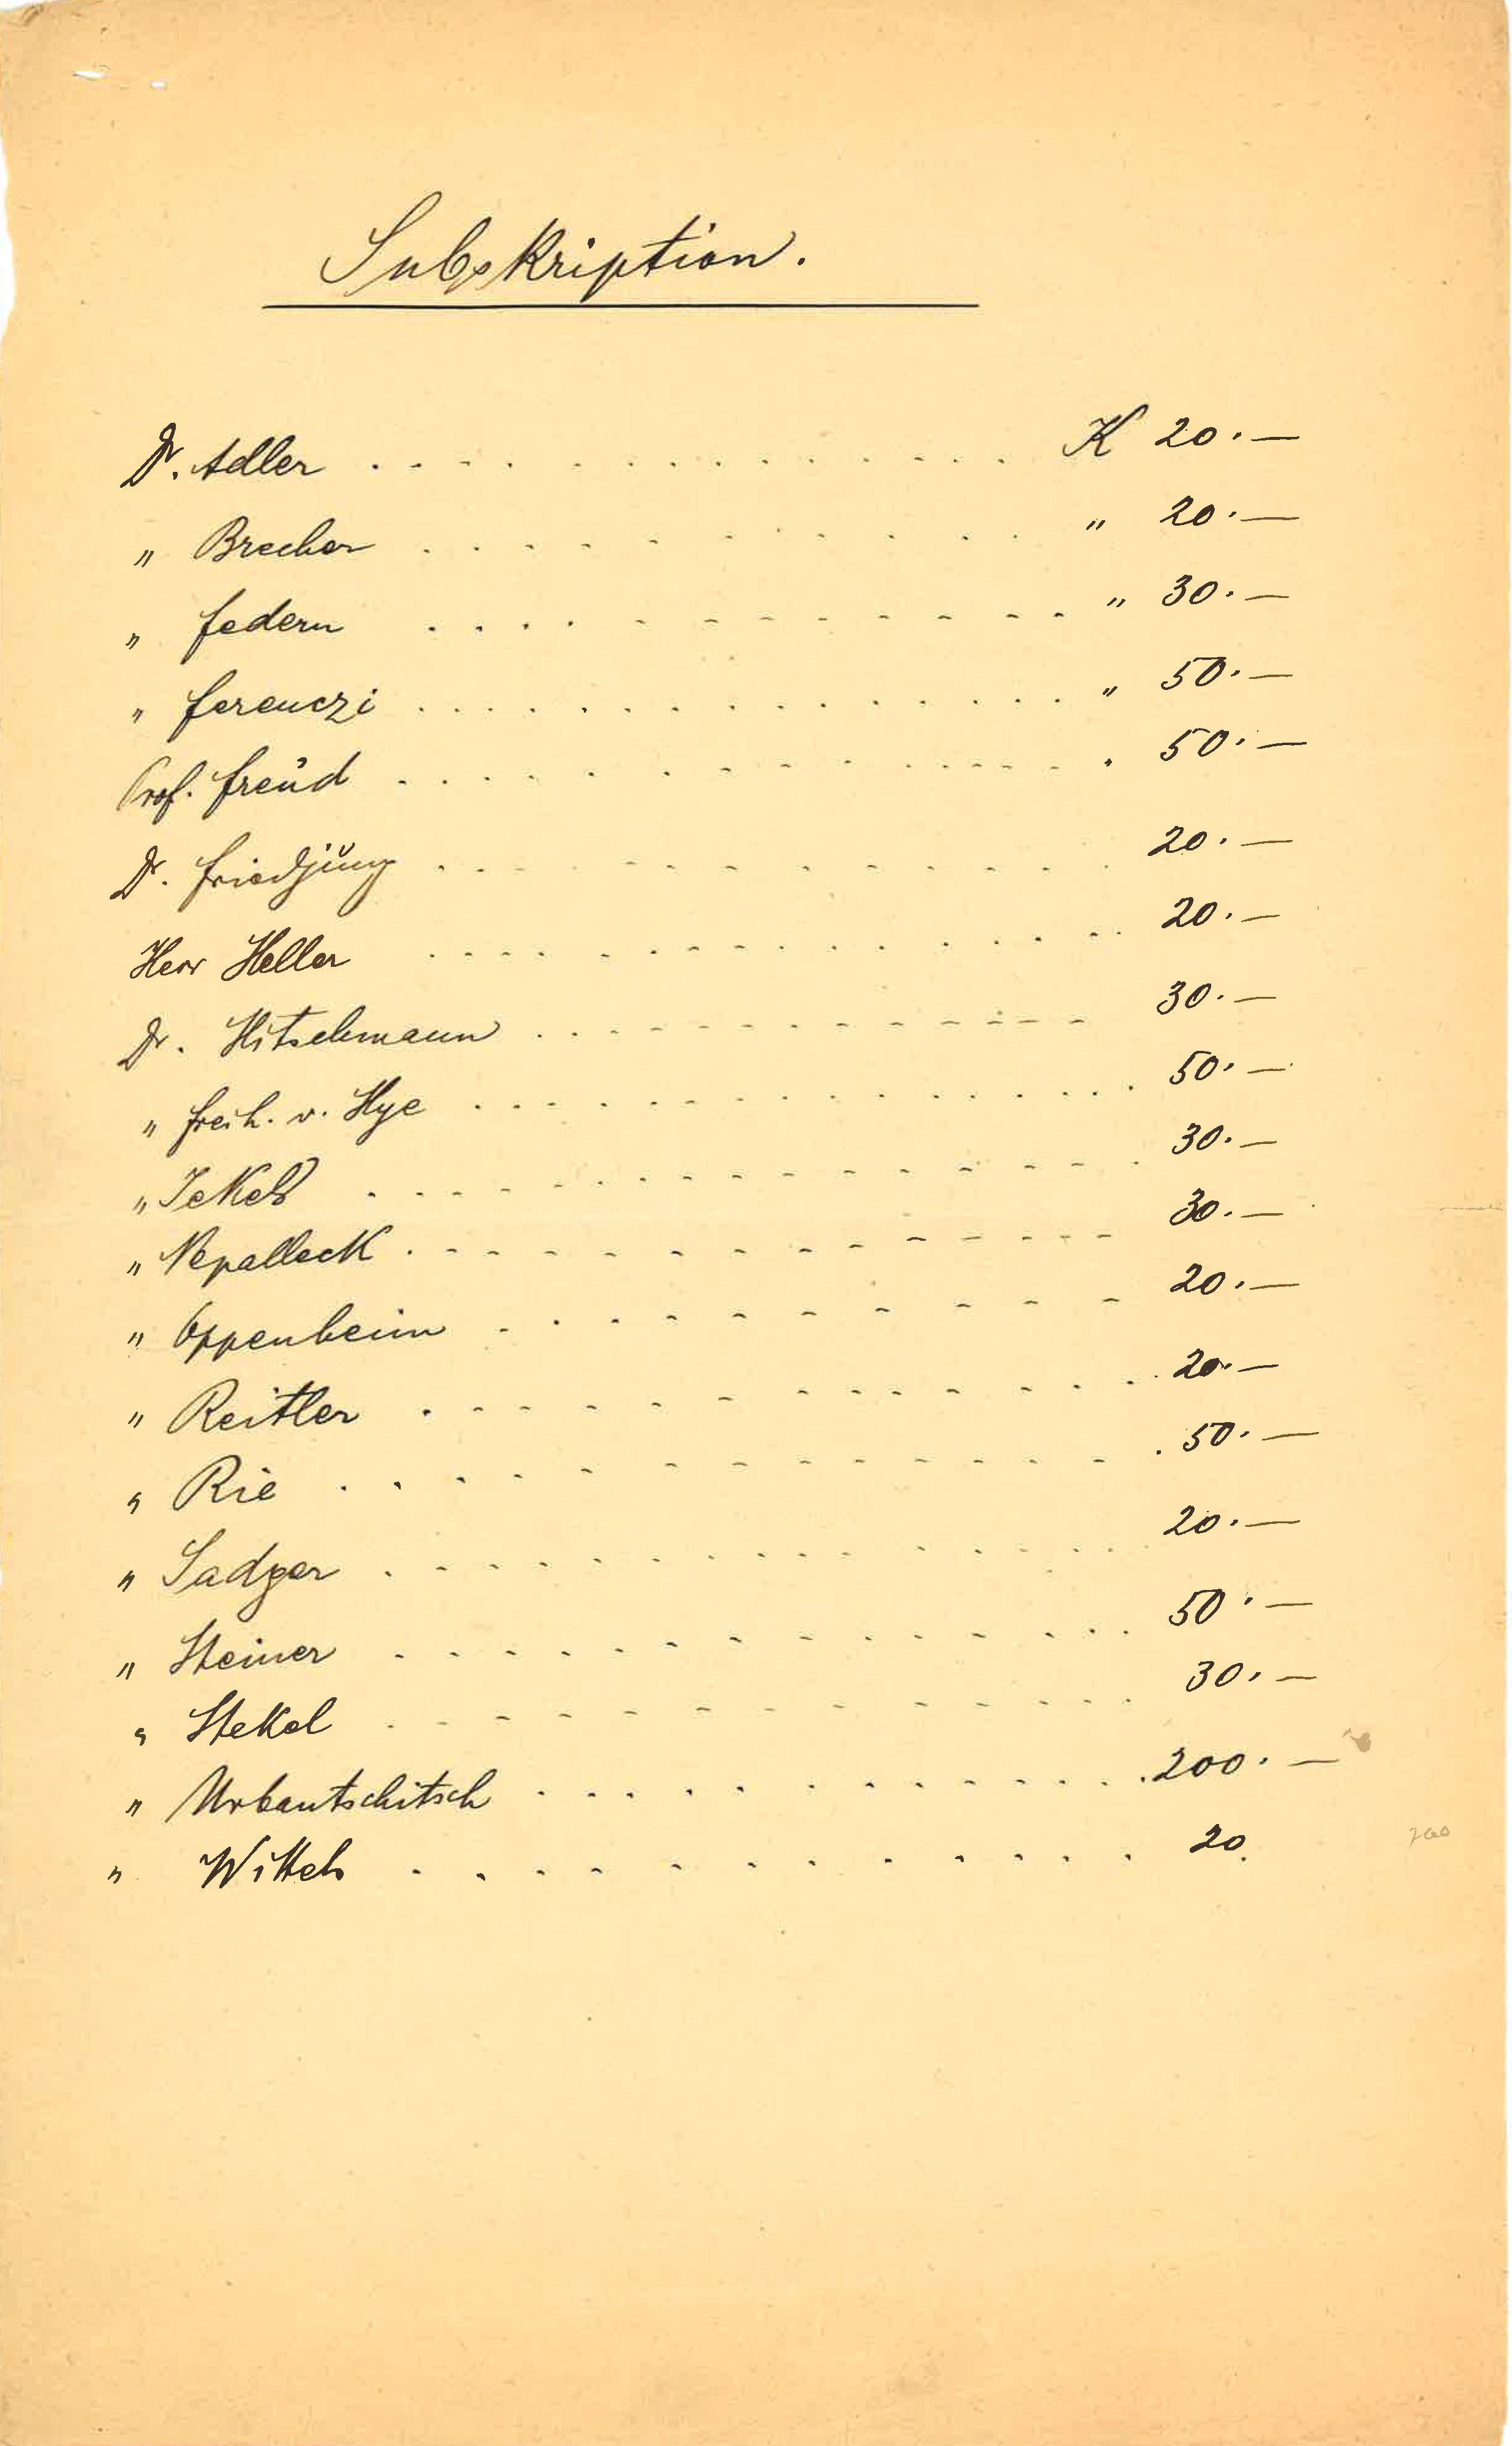 Subskription.
Dr. Adler . . . . . . . . . . . . . . . K 20.—
" Brecher . . . . . . . . . . . . " 20.—
" Federn . . . . - - - - - - - - - " 30.—
" Ferenczi . . . . . . . . . . . . . . . " 50.—
Prof. Freud . . . . . . . - - - - - - - . 50.—
Dr. Friedjung . . . . . . . . . . . . 20.—
Herr Heller . . . . . . . . . . . . . . 20.—
Dr. Hitschmann . . . . - - - - - - - - 30.—
" Freih. v. Hye . . . . . . . . . . . . . 50.—
" Jekels . . . . . . . . . . . . . . 30.—
" Nepalleck . - - - - - - - - - - - - 30.—
" Oppenheim . . . - - - - - - - 20.—
" Reitler . - - - - - - - - - . . . 20.—
" Rie . . . - - - - - - - - - . 50.—
" Sadger . . . . . . . . . . . . . . 20.—
" Steiner . . . . . . . . . . . . . . 50.—
" Stekel . - - - - - - - - - . . . 30.—
" Urbantschitsch . . . . . . . . . . . . 200.—
" Wittels . . . . . . . . . . . 20.